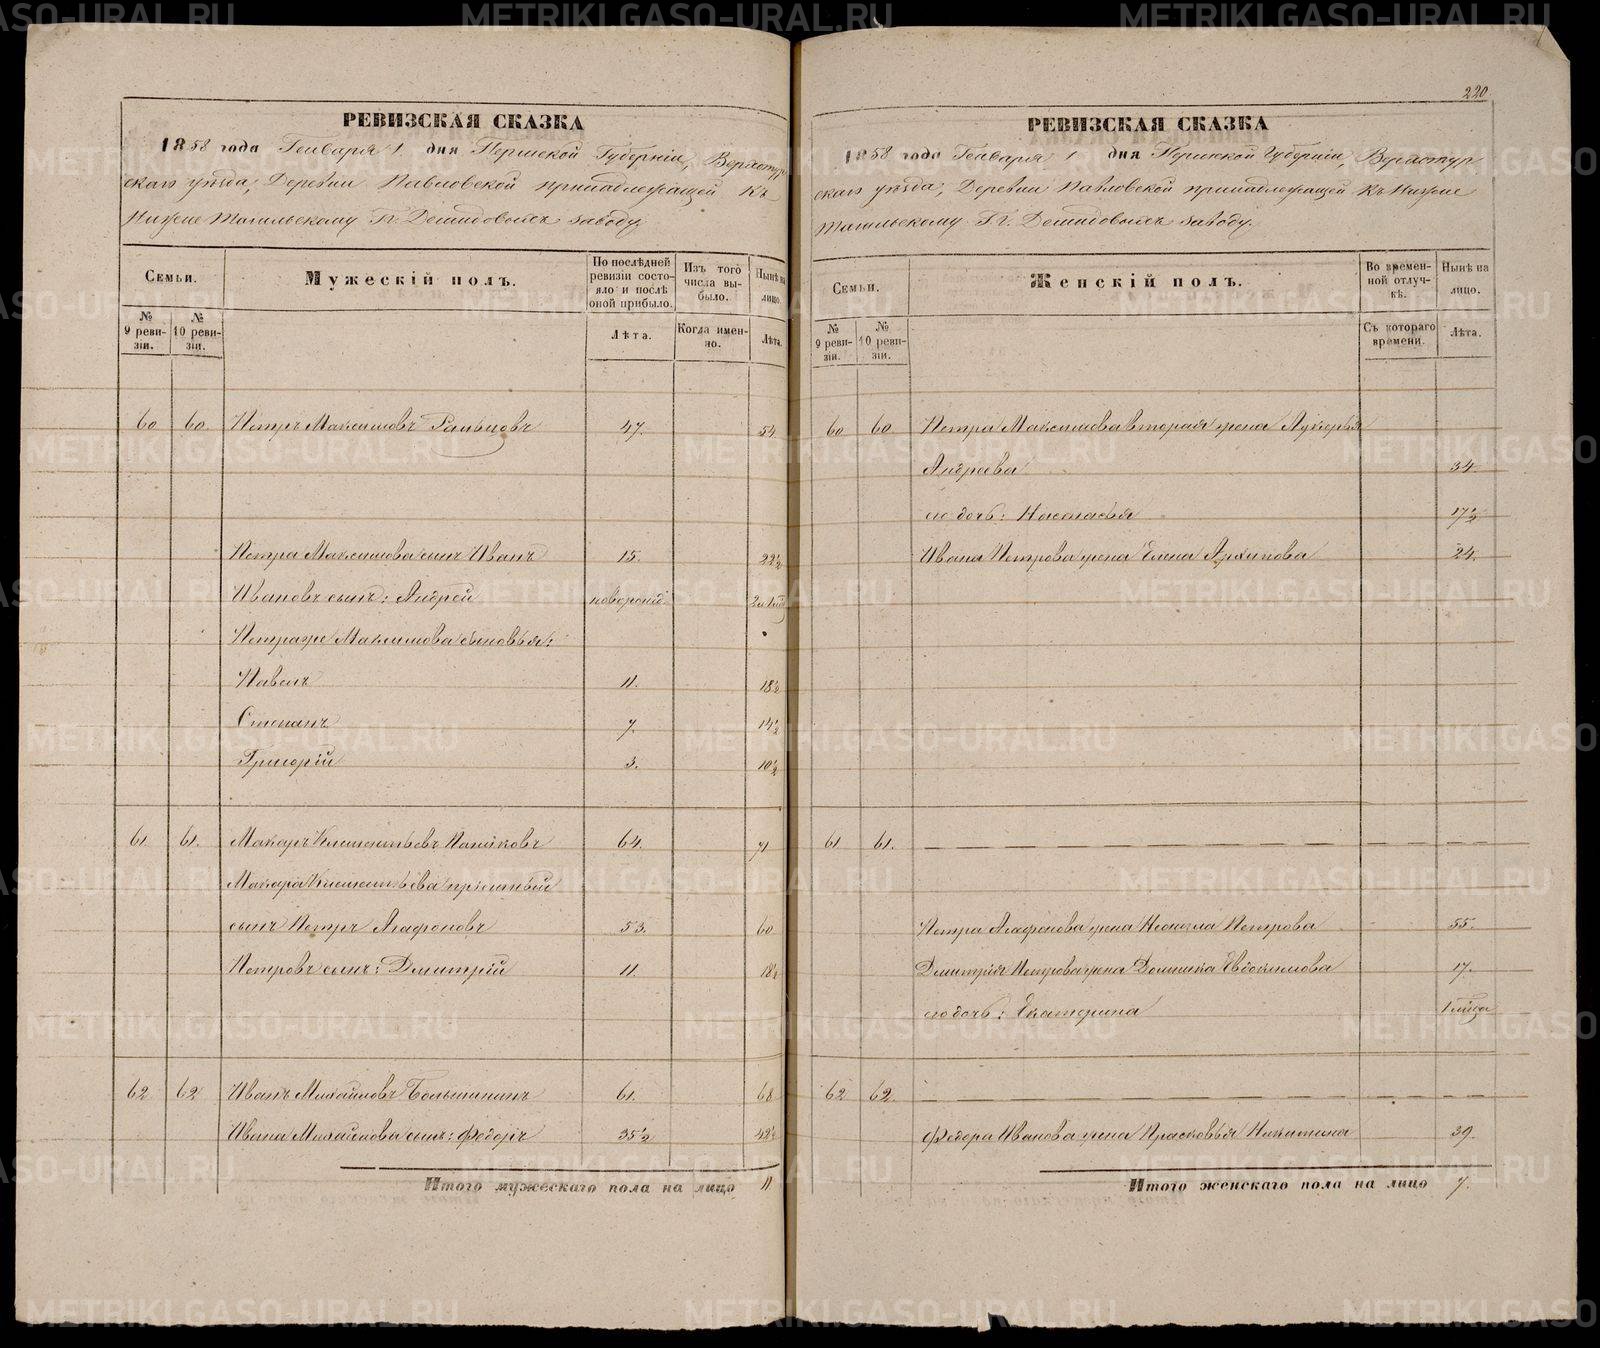 220
РЕВИЗСКАЯ СКАЗКА
1858 года Генваря 1 дня Пермской Губернiи, Верхотур
скаго уѣзда, Деревни Павловской принадлежащей къ
Нижне Тагильскому Гг. Демидовыхъ заводу.
Семьи.
Мужескiй полъ.
По послѣдней ревизiи состояло и послѣ оной прибыло.
Изъ того числа выбыло.
Нынѣ на лицо.
№ 9 ревизiи.
№ 10 ревизiи.
Лѣта.
Когда именно.
Лѣта.
60 60 Петръ Максимовъ 47. 54.
Петра Максимова сынъ Иванъ 15. 22½
Ивановъ сынъ: Андрей новорожд.
Петра же Максимова сыновья:
Павелъ 11. 18½
Степанъ 7. 14½
Григорiй 3. 10½
61 61. Макаръ Климентьевъ 64. 71
Макара Климентьева прiемный
сынъ Петръ Агафоновъ 53. 60
Петровъ сынъ: Дмитрiй 11. 18½
62 62 Иванъ Михайловъ 61. 68
Ивана Михайлова сынъ: Федоръ 35½ 42½
Итого мужескаго пола на лицо 11
РЕВИЗСКАЯ СКАЗКА
1858 года Генваря 1 дня Пермской Губернiи, Верхотур
скаго уѣзда, Деревни Павловской принадлежащей къ Нижне
Тагильскому Гг. Демидовыхъ заводу.
Семьи.
Женскiй полъ.
Во временной отлучкѣ.
Нынѣ на лицо.
№ 9 ревизiи.
№ 10 ревизiи.
Съ котораго времени.
Лѣта.
60 60 Петра Максимова вторая жена Лукерья
Андреева 34.
ею дочь: Настасья 17½
Ивана Петрова жена Елена Архипова 24.
61 61.
Петра Агафонова жена Неонила Петрова 55.
Дмитрiя Петрова жена Домника Евдокимова 17.
ею дочь: Екатерина
62 62
Федора Иванова жена Прасковья Никитина 39.
Итого женскаго пола на лицо 7.
METRIKI.GASO-URAL.RU